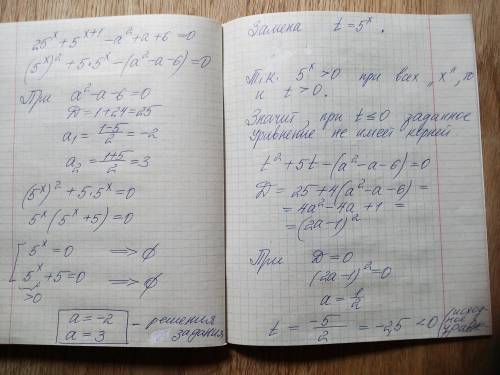 25^x + 5^(x+1) - a² + a + 6 = 0
(5^x)² + 5·5^x - (a² - a - 6) = 0
При a² - a - 6 = 0
D = 1 + 24 = 25
a₁ = (1-5)/2 = -2
a₂ = (1+5)/2 = 3
(5^x)² + 5·5^x = 0
5^x (5^x + 5) = 0
[ 5^x = 0 ⟹ ∅
5^x + 5 = 0 ⟹ ∅
>0
a = -2
a = 3
- решения
задания
Замена t = 5^x.
Т.к. 5^x > 0 при всех „x", то
и t > 0.
Значит, при t ≤ 0 заданное
уравнение не имеет корней
t² + 5t - (a² - a - 6) = 0
D = 25 + 4(a² - a - 6) =
= 4a² - 4a + 1 =
= (2a - 1)²
При D = 0
(2a - 1)² = 0
a = 1/2
t = -5/2 = -2,5 < 0